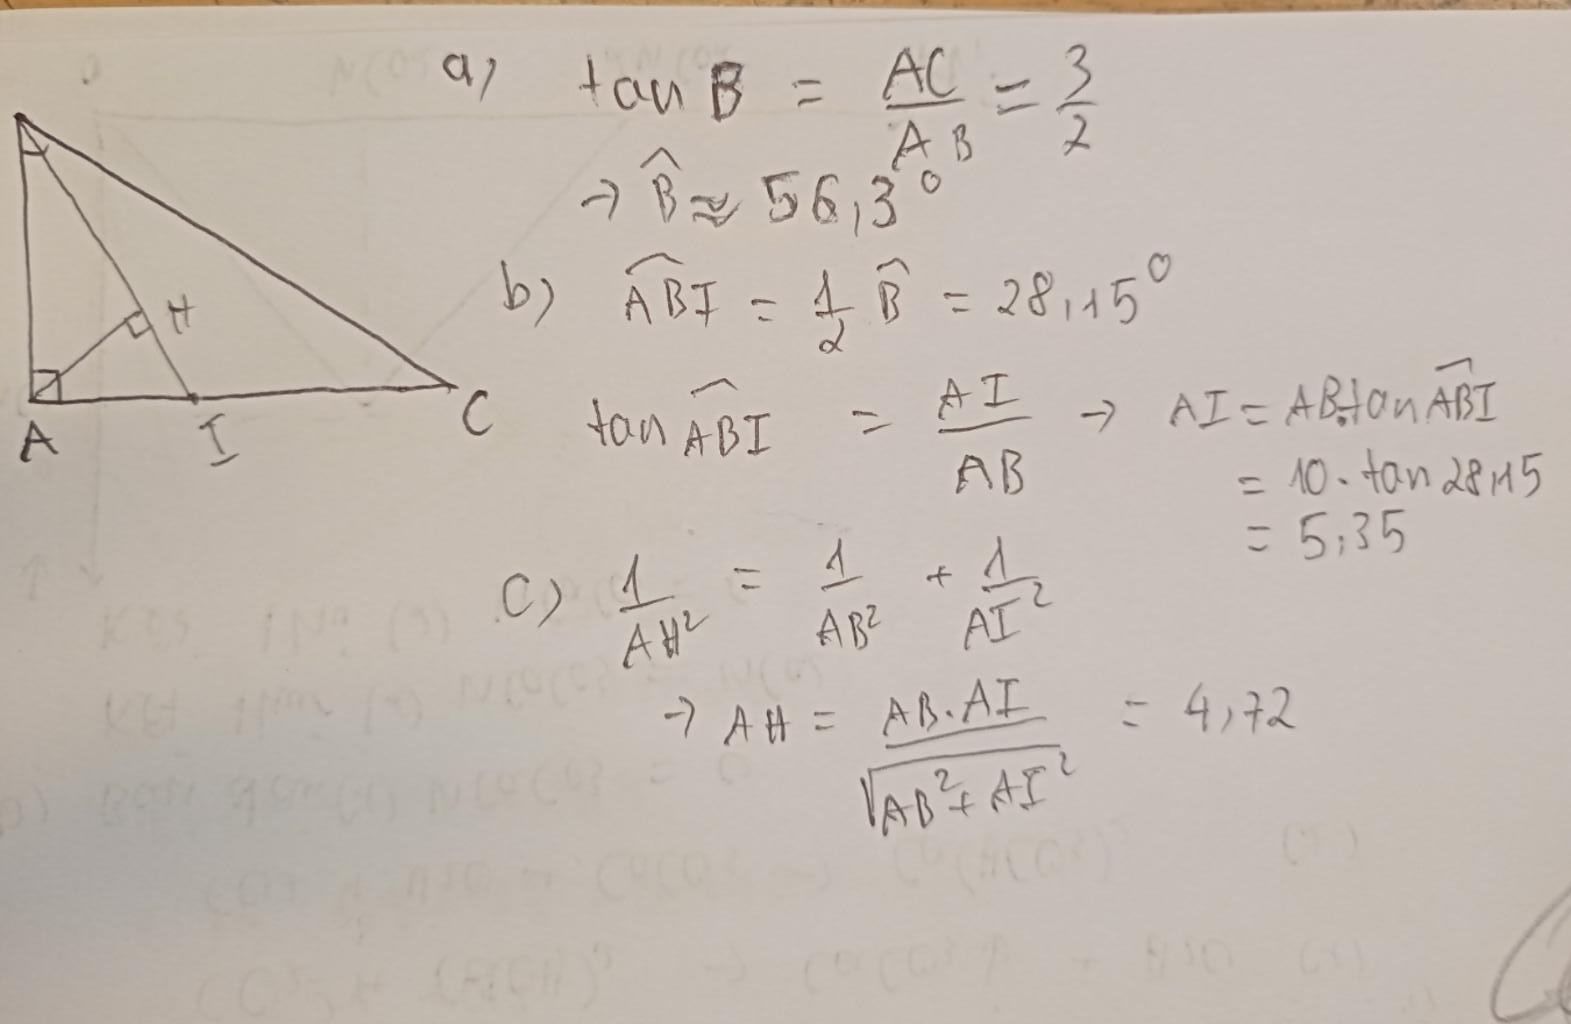 a) tan B = AC/AB = 3/2
→ B̂ ≈ 56,3°
b) ABI^ = 1/2 B̂ = 28,15°
tan ABI^ = AI/AB → AI = AB.tan ABI^
= 10. tan 28,15
= 5,35
c) 1/AH² = 1/AB² + 1/AI²
→ AH = AB.AI/√(AB²+AI²) = 4,72
H
A I C